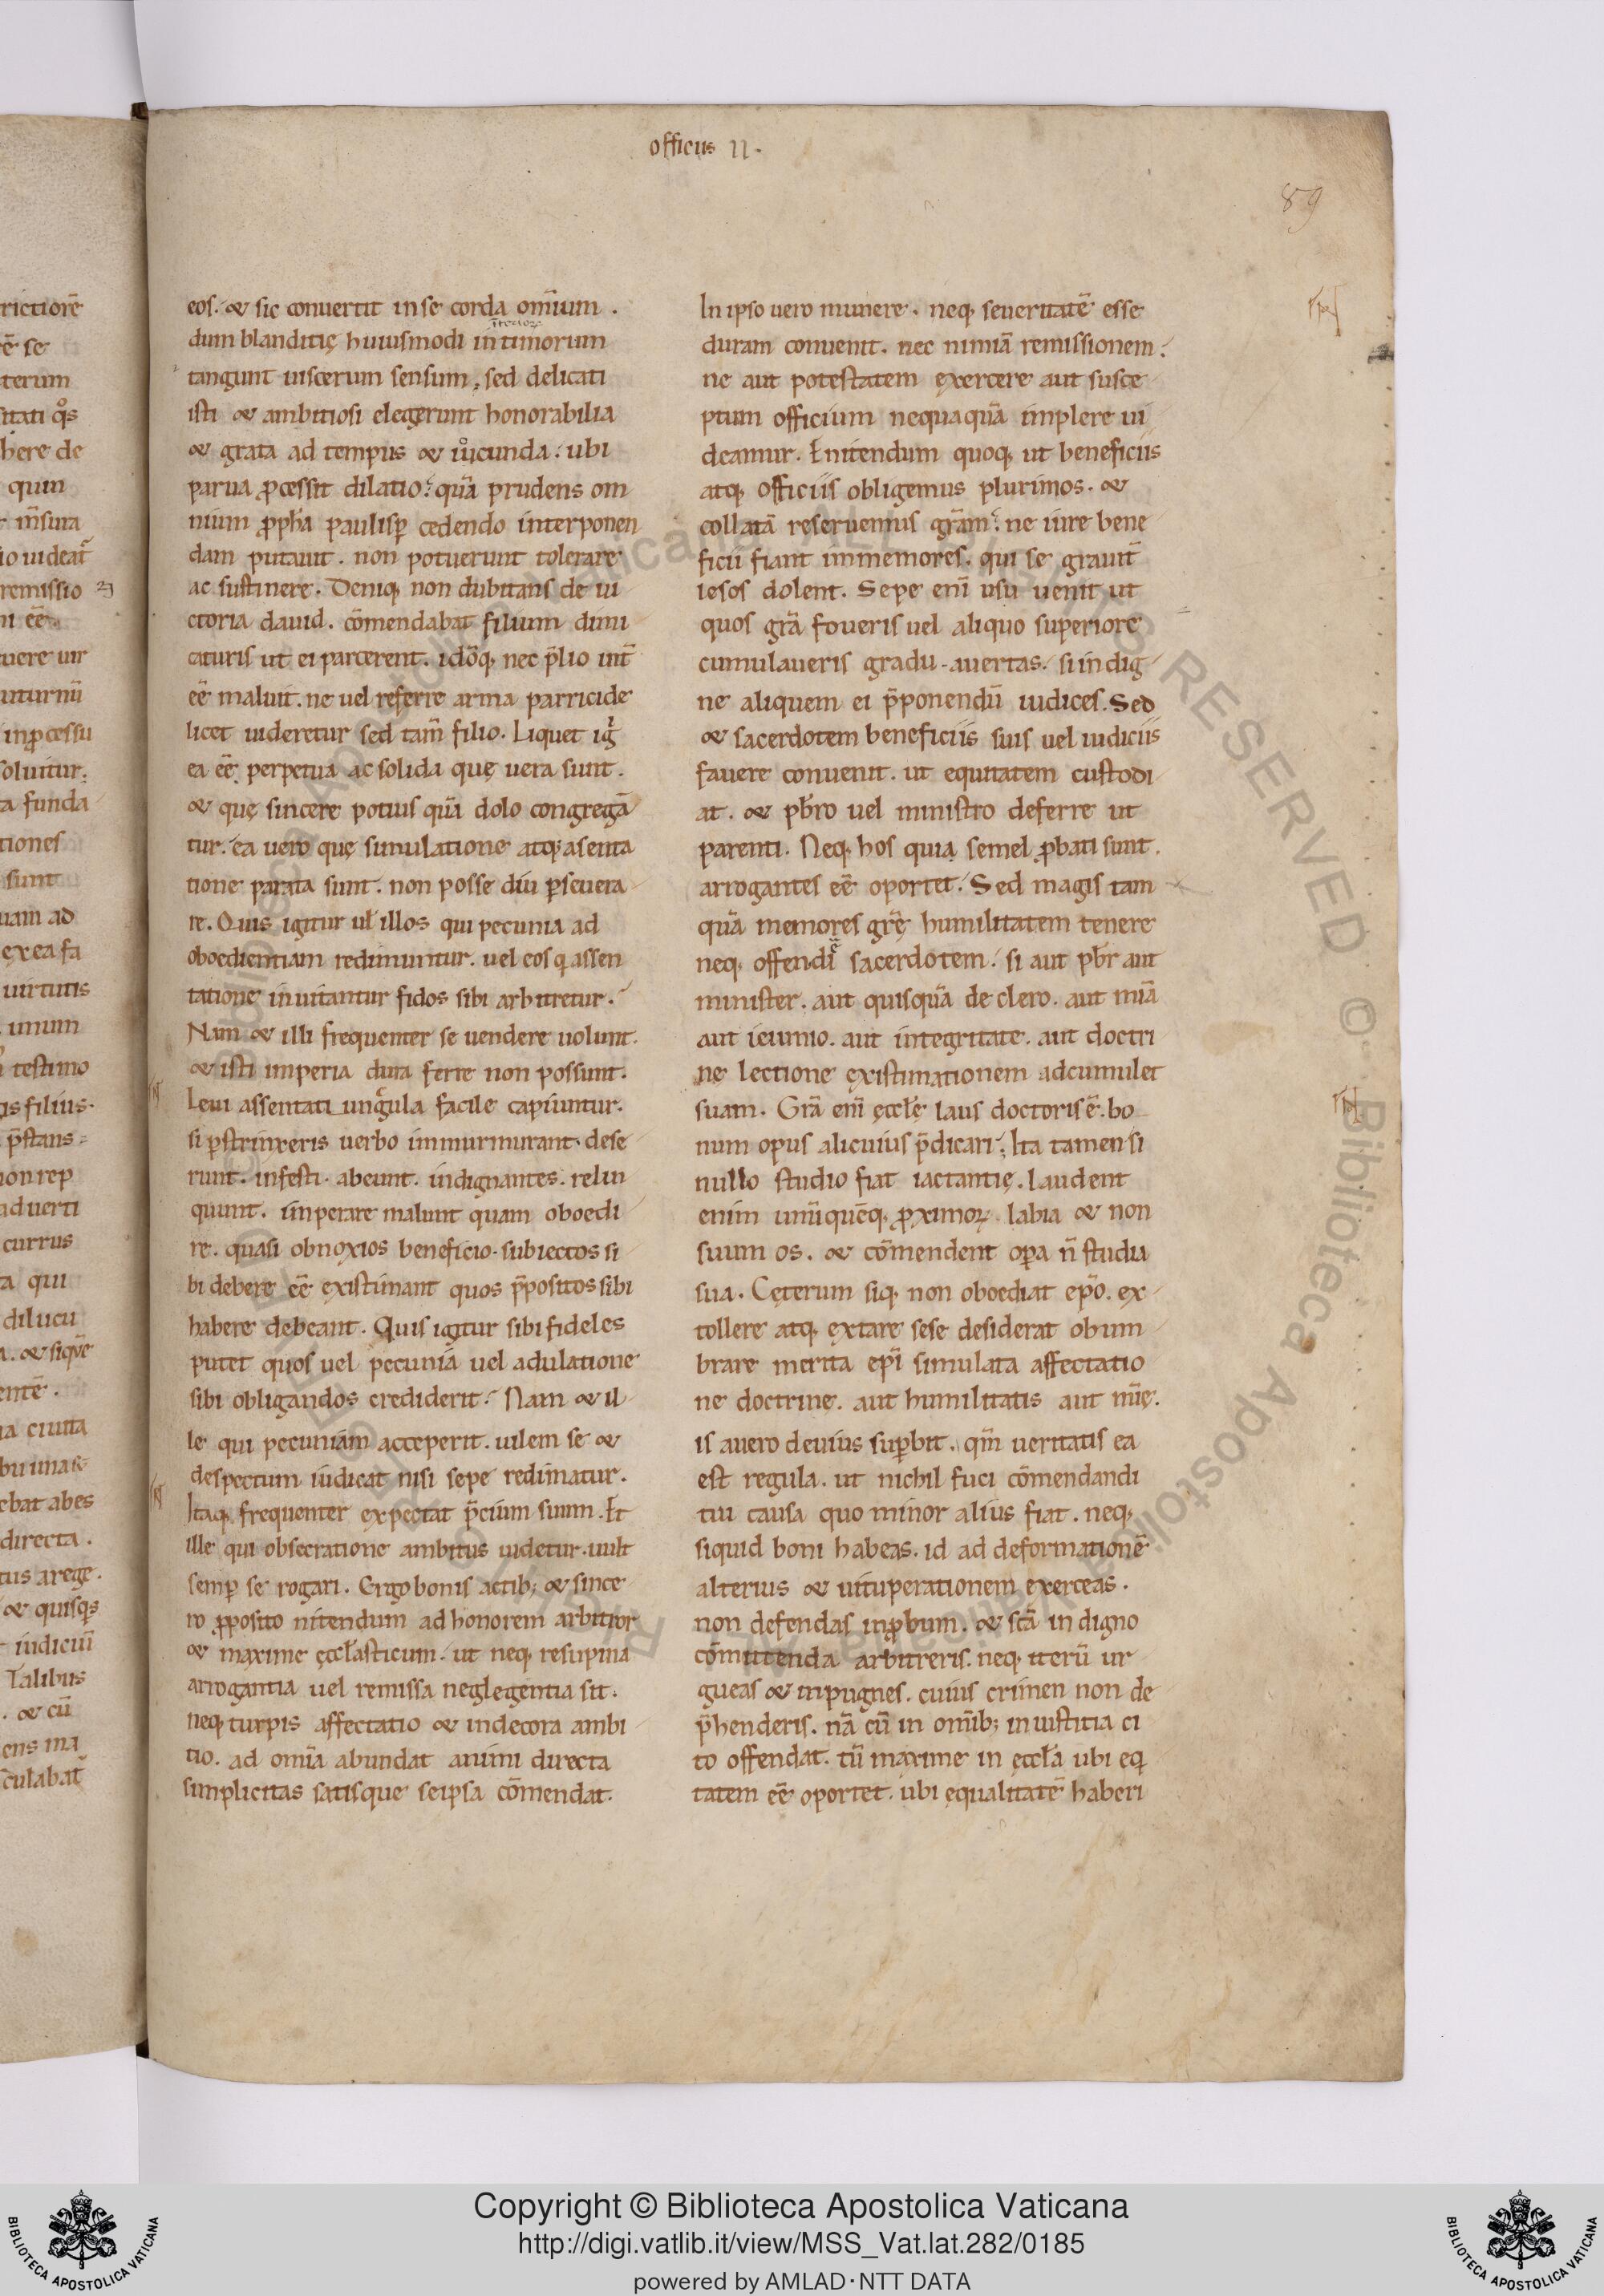 officiis II.
89
eos. & sic conuertit in se corda om̄ium.
dum blanditię huiusmodi intimorum
tangunt uiscerum sensum, sed delicati
isti & ambitiosi elegerunt honorabilia
& grata ad tempus & iůcunda. ubi
parua ꝓcessit dilatio. quā prudens om
nium ꝓph̄a paulisꝑ cedendo interponen
dam putauit. non potuerunt tolerare
ac sustinere. Deniq; non dubitans de ui
ctoria dauid. cōmendabat filium dimi
caturis ut ei parcerent. idōq; nec p̄lio int̄
eē maluit. ne uel referre arma parricide
licet uideretur sed tam̄ filio. Liquet iḡ
ea eē perpetua ac solida quę uera sunt.
& quę sincere potius quā dolo congregā
tur. ea uero quę simulatione atq; asenta
tione parata sunt. non posse diu ꝑseuera
re. Quis igitur ul̄ illos qui pecunia ad
oboedientiam redimuntur. uel eos q assen
tatione inuitantur fidos sibi arbitretur.
Nam & illi frequenter se uendere uolunt.
& isti imperia dura ferre non possunt.
Leui assentati ungula facile capiuntur.
si ꝑstrinxeris uerbo immurmurant. dese
runt. infesti. abeunt. indignantes. relin
quunt. imperare malunt quam oboedi
re. quasi obnoxios beneficio. subiectos si
bi debere eē existimant quos p̄positos sibi
habere debeant. Quis igitur sibi fideles
putet quos uel pecunia uel adulatione
sibi obligandos crediderit. Nam & il
le qui pecuniam acceperit. uilem se &
despectum iudicat nisi sepe redimatur.
Itaq; frequenter expectat p̄cium suum. Et
ille qui obsecratione ambitus uidetur. uult
semꝑ se rogari. Ergo bonis actib; & since
ro ꝓposito nitendum ad honorem arbitror
& maxime ęccl̄asticum. ut neq; resupina
arrogantia uel remissa neglegentia sit.
neq; turpis affectatio & indecora ambi
tio. ad om̄a abundat animi directa
simplicitas satisque seipsa cōmendat.
In ipso uero munere. neq; seueritatē esse
duram conuenit. nec nimiā remissionem.
ne aut potestatem exercere aut susce
ptum officium nequaquā implere ui
deamur. Enitendum quoq; ut beneficiis
atq; officiis obligemus plurimos. &
collatā reseruemus grām. ne iure bene
ficii fiant immemores. qui se grauit̄
lesos dolent. Sepe eni usu uenit ut
quos grā foueris uel aliquo superiore
cumulaueris gradu. auertas. si indig
ne aliquem ei p̄ponendū iudices. Sed
& sacerdotem beneficiis suis uel iudiciis
fauere conuenit. ut equitatem custodi
at. & pb̄ro uel ministro deferre ut
parenti. Neq; hos quia semel ꝓbati sunt.
arrogantes eē oportet. Sed magis tam
quā memores grę̄ humilitatem tenere
neq; offendi sacerdotem. si aut pb̄r aut
minister. aut quisquā de clero. aut miā
aut ieiunio. aut integritate. aut doctri
ne lectione existimationem adcumulet
suam. Grā eni ęccl̄ę laus doctoris ē. bo
num opus alicuius p̄dicari. Ita tamen si
nullo studio fiat iactantię. Laudent
enim unūquēq; ꝓximoꝝ labia & non
suum os. & cōmendent oꝑa n̄ studia
sua. Cęterum siq; non oboediat ep̄o. ex
tollere atq; extare sese desiderat obum
brare merita ep̄i simulata affectatio
ne doctrine. aut humilitatis aut mīe.
is auero deuius suꝑbit. qm̄ ueritatis ea
est regula. ut nichil fuci cōmendandi
tui causa quo minor alius fiat. neq;
siquid boni habeas. id ad deformationē
alterius & uituperationem exerceas.
non defendas inꝓbum. & sc̄a indigno
cōmittenda arbitreris. neq; iterū ur
gueas & inpugnes. cuius crimen non de
p̄henderis. nā cū in om̄ib; iniustitia ci
to offendat. tū maxime in ęccl̄a ubi eq
tatem eē oportet. ubi equalitatē haberi
Copyright © Biblioteca Apostolica Vaticana
http://digi.vatlib.it/view/MSS_Vat.lat.282/0185
powered by AMLAD·NTT DATA
BIBLIOTECA APOSTOLICA VATICANA
BIBLIOTECA APOSTOLICA VATICANA